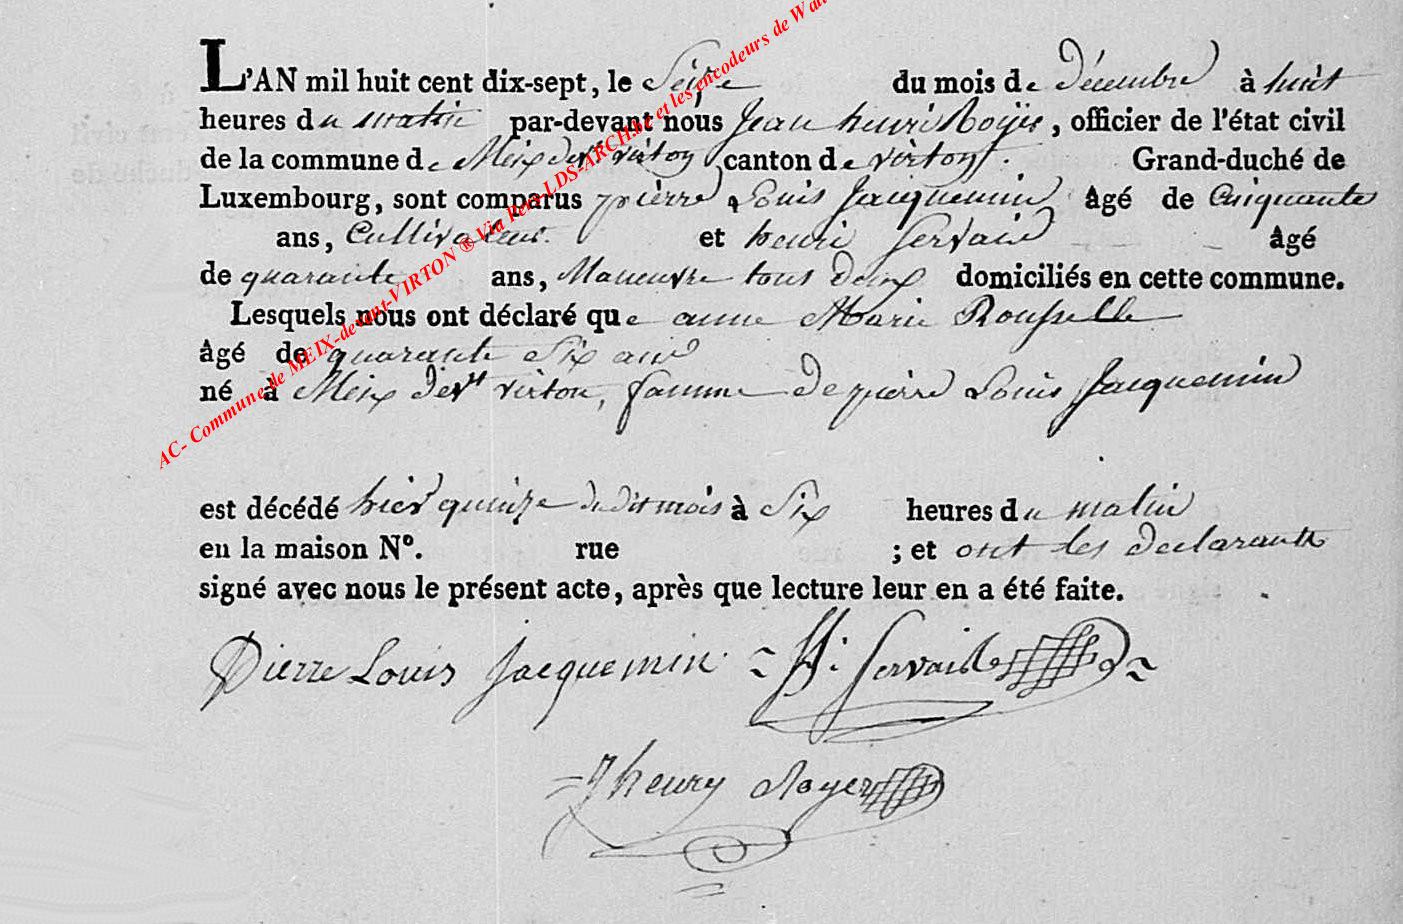 L'AN mil huit cent dix-sept, le Seize du mois de décembre à huit
heures du matin par-devant nous Jean henri Royer, officier de l'état civil
de la commune de Meix devt virton canton de virton. Grand-duché de
Luxembourg, sont comparus pierre Louis Jacquemin âgé de Cinquante
ans, Cultivateur. et henri Servais âgé
de quarante ans, Maneuvre tous deux domiciliés en cette commune.
Lesquels nous ont déclaré que anne Marie Rousselle
âgé de quarante Six ans
né à Meix devt virton, famme de pierre Louis Jacquemin
est décédé hier quinze du dit mois à Six heures du matin
en la maison N°. rue ; et ont les declarants
signé avec nous le présent acte, après que lecture leur en a été faite.
Pierre Louis Jacquemin H. Servais
J henry Royer
AC- Commune de MEIX-devant-VIRTON ® Via Pers-LDS-ARCH.be et les encodeurs de Wal